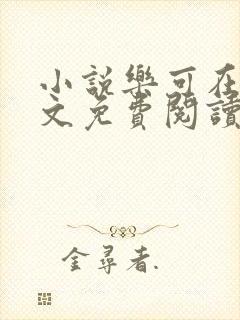 小說樂可在
文免費閱讀
金尋者.